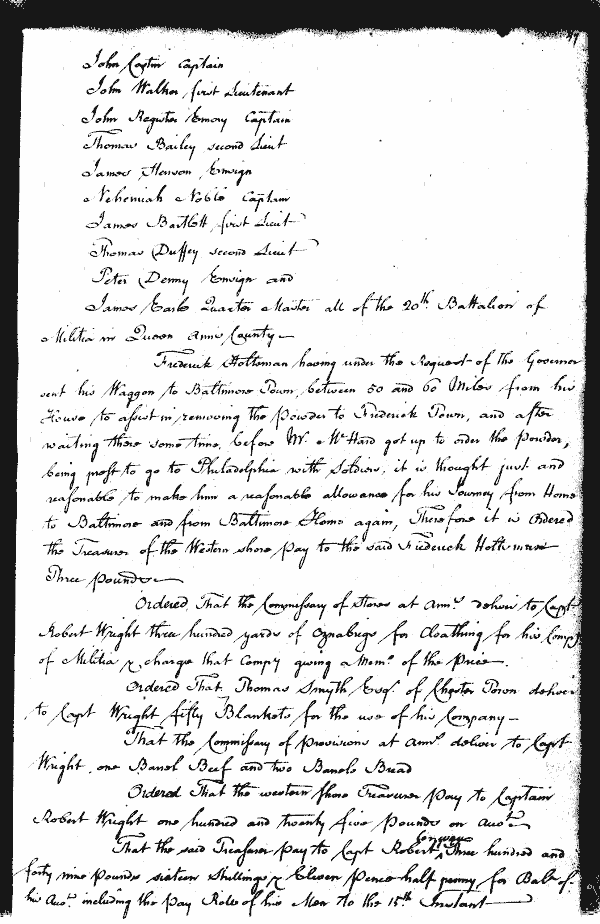 John Captain
John Walker first Lieutenant
John Register Emory Captain
Thomas Bailey second Lieut
James Henson Ensign
Nehemiah Noble Captain
James Bartlett first Lieut
Thomas Duffey second Lieut
Peter Denny Ensign and
James Earle Quarter Master all of the 20th. Battalion of
Militia in Queen Anns County
Frederick Holtzman having under the Request of the Governor
sent his Waggon to Baltimore Town, between 50 and 60 Miles from his
House to assist in removing the Powder to Frederick Town, and after
waiting there some time, before Mr. McHard got up to order the powder,
being prest to go to Philadelphia with Soldiers; it is thought just and
reasonable to make him a reasonable allowance for his Journey from Home
to Baltimore and from Baltimore Home again, Therefore it is Ordered
the Treasurer of the Western shore pay to the said Frederick Holtsman
Three pounds
Ordered, That the Commissary of stores at Anns. deliver to Capt
Robert Wright three hundred yards of Oznabrigs for Cloathing for his Compy
of Militia & charge that Compy giving a Memo. of the Price.
Ordered That Thomas Smyth Esqr. of Chester Town deliver
to Capt Wright fifty Blankets for the use of his Company
That the Commissary of Provisions at Anns. deliver to Capt
Wright one Barrel Beef and two Barrels Bread
Ordered That the western shore Treasurer pay to Captain
Robert Wright one hundred and twenty five Pounds on Acct.
That the said Treasurer pay to Capt Robert Conway Three hundred and
forty nine pounds sixteen shillings & Eleven Pence half penny for Bale. of
his Acct. including the Pay Role of his Men to the 15th Instant